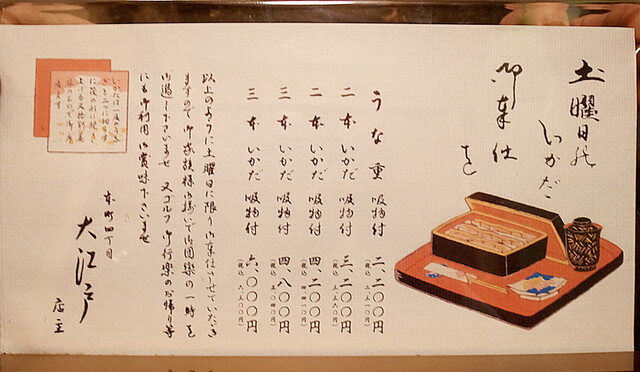 土曜日の
いかだ
御奉仕
を
うな重 吸物付 二、二〇〇円
(税込 二、三一〇円)
二本 いかだ 吸物付 三、二〇〇円
二本 いかだ 吸物付 四、二〇〇円
(税込 四、四一〇円)
三本 いかだ 吸物付 四、八〇〇円
(税込 五、〇四〇円)
三本 いかだ 吸物付 六、〇〇〇円
(税込 六、三〇〇円)
以上のように土曜日に限り御奉仕させていただき
ますので御家族様お揃いで御団欒の一時を
お過し下さいませ 又ゴルフ御行楽のお帰り等
にも御利用御賞味下さいませ
本町四丁目
大江戸
店主